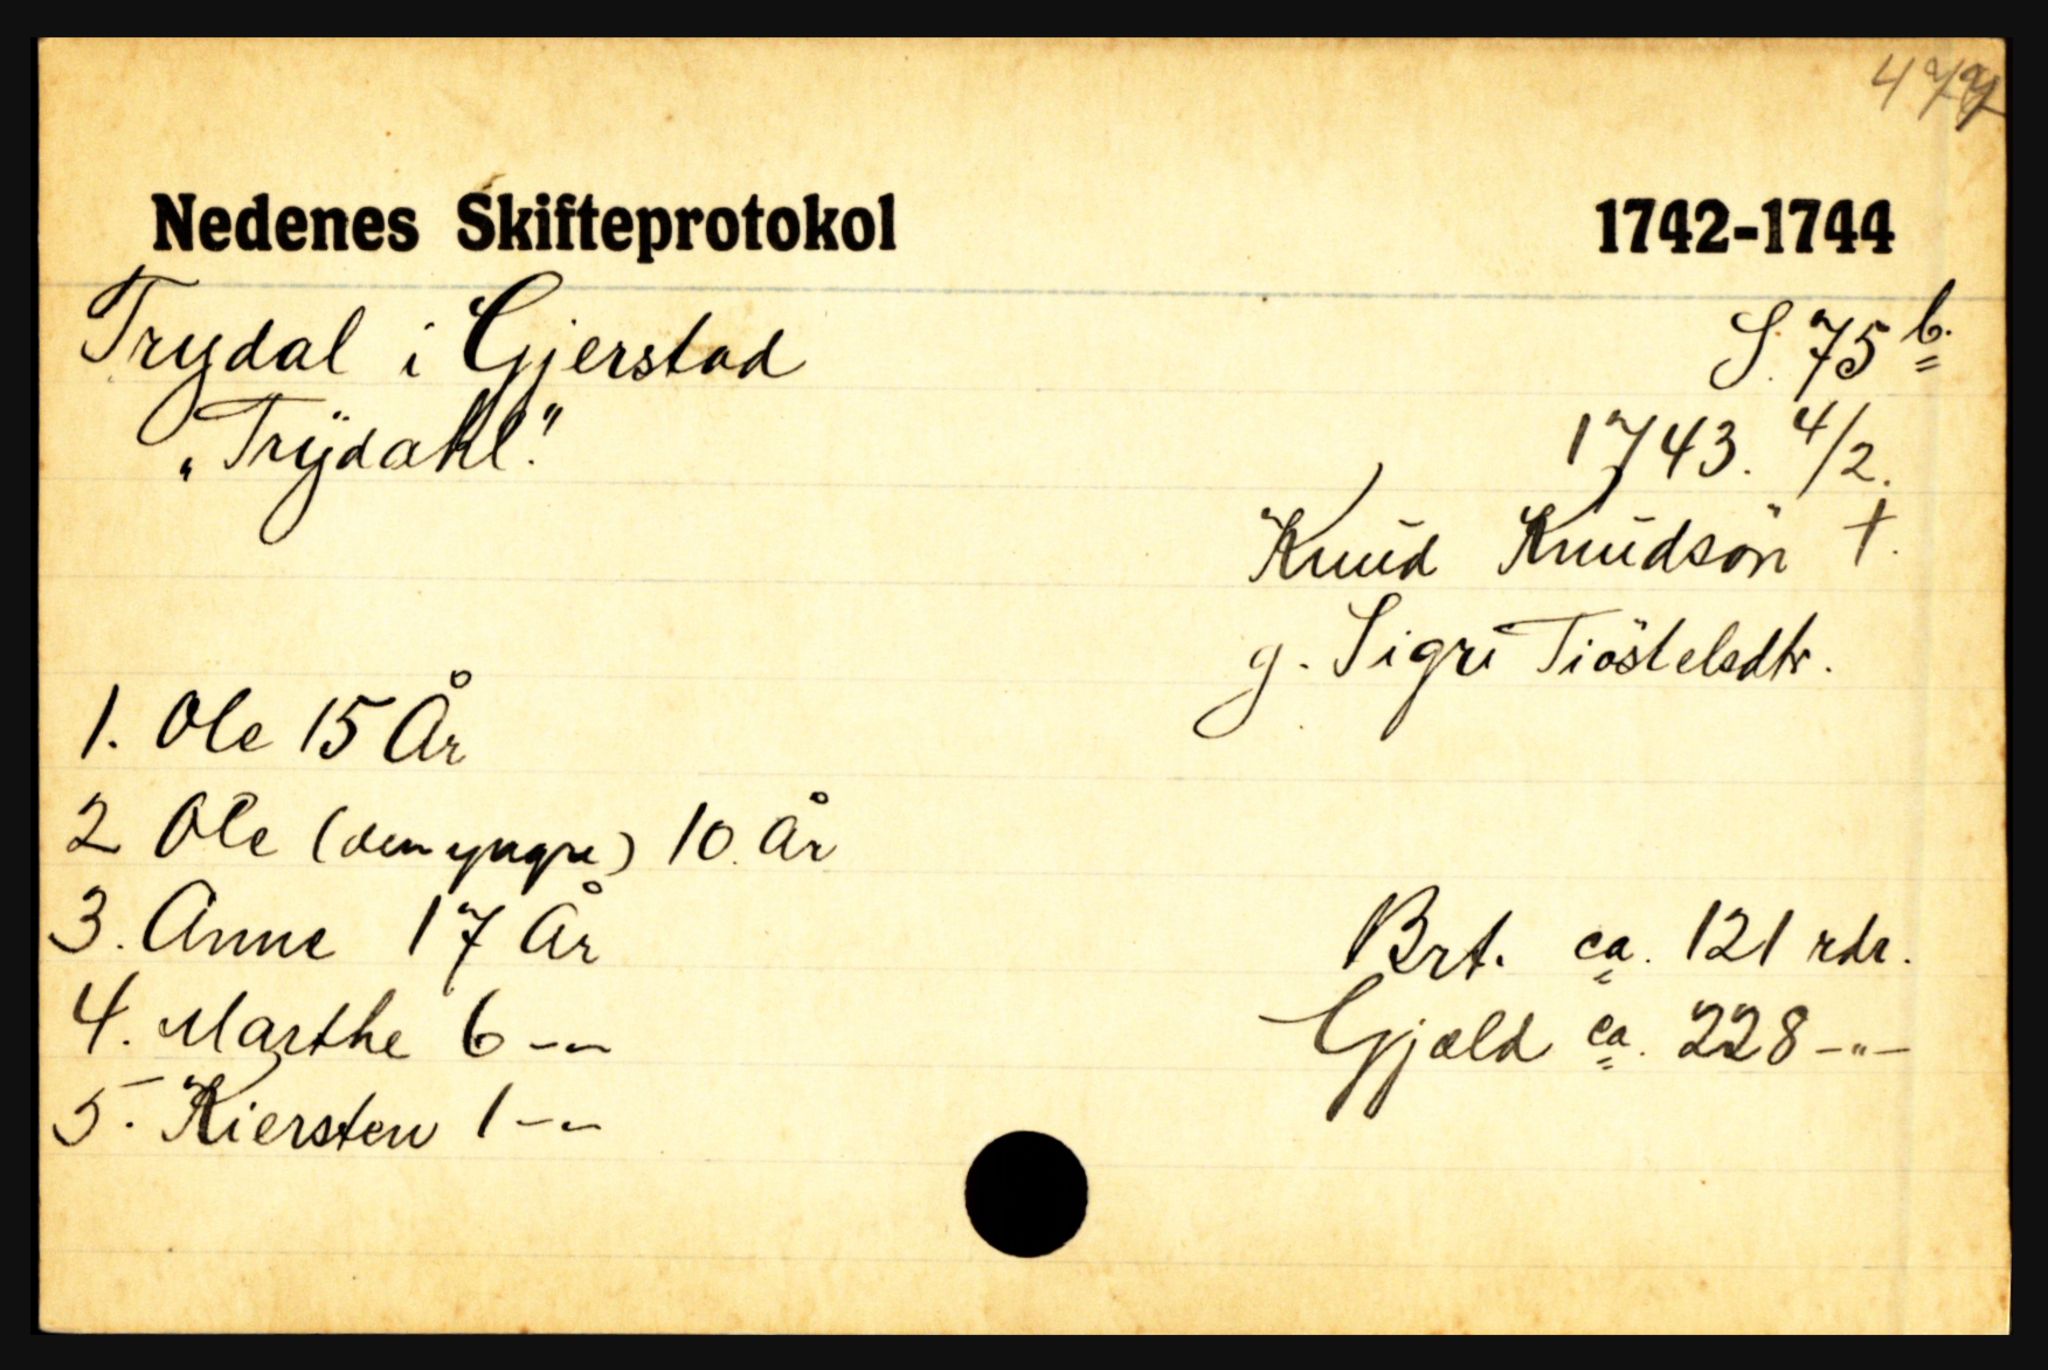 Nedenes Skifteprotokol 1742-1744
Trydal i Gjerstad S. 75 b.
"Trÿdahl." 1743. 4/2.
Knŭd Knŭdsön †.
g. Sigri Tiöstelsdtr.
1. Ole 15 År
2 Ole (den yngre) 10. År
3. Anne 17 År
Brt. ca. 121 rdr.
4. Marthe 6 -"-
Gjæld ca. 228 -"-
5. Kiersten 1 -"-